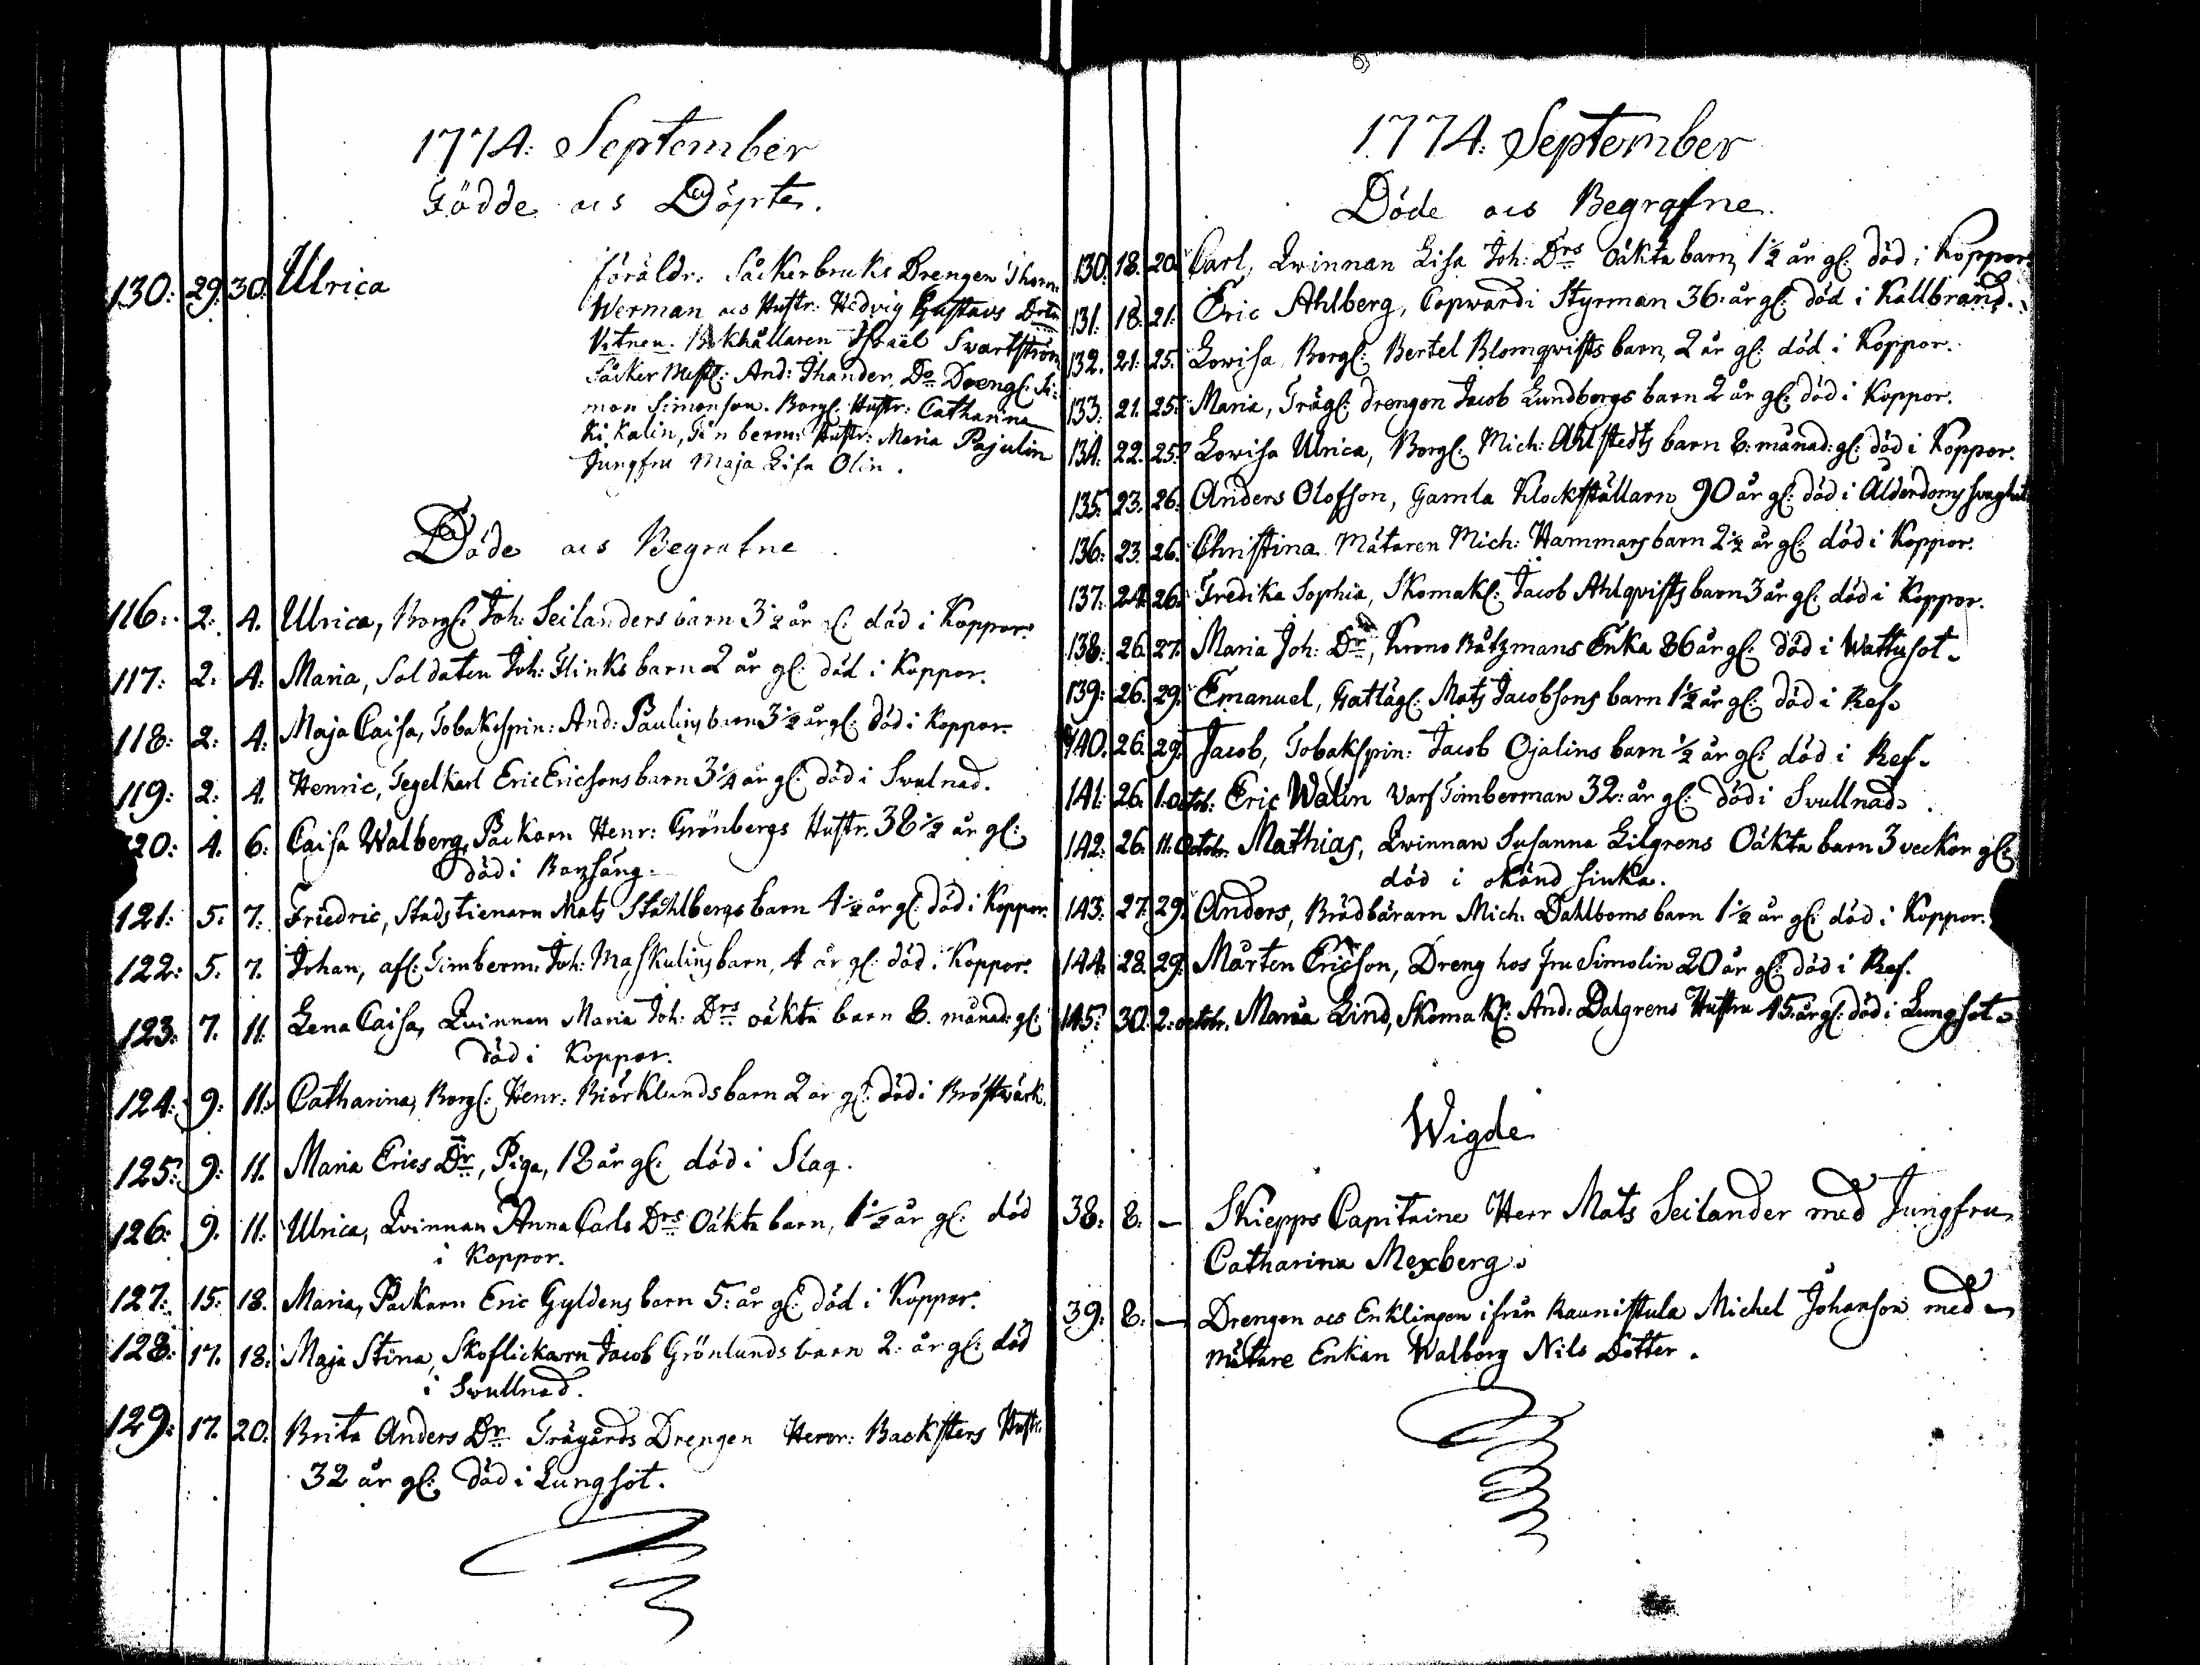 1774: September
Födde ocs Döpte.
130: 29: 30: Ulrica föräldr: Såckerbruks Drengen Thom:
Werman ocs Hustr: Hedvig Gustavs Dotr
Vitnen. Bokhållaren Israël Svartström
Såcker Mest: And: Thander, Do Drengl: Si:
mon Simonson. Borgl: Hustr: Catharina
Ki Kalin, Timberm: Hustr: Maria Pajulin
Jungfru Maja Lisa Olin.
Döde ocs Begrafne
116: 2: 4. Ulrica, Borgl: Joh: Seilanders barn 3 1/2 år gl: död i Koppor.
117: 2: 4: Maria, Soldaten Joh: Flinks barn 2 år gl: död i Koppor.
118: 2: 4: Maja Caisa, Tobakspin: And: Paulins barn 3 1/2 år gl: död i Koppor.
119: 2: 4. Henric, Tegelkarl Eric Ericsons barn 3 1/4 år gl: död i Svalnad.
120: 4. 6: Caisa Walberg, Packarn Henr: Grönbergs Hustr. 38 1/2 år gl:
död i Barnsäng.
121: 5: 7: Friedric, Stadstienarn Mats Ståhlbergs barn 4 1/2 år gl: död i Koppor.
122: 5. 7. Johan, afl: Timberm: Joh: Maskulins barn, 4 år gl: död i Koppor.
123: 7. 11: Lena Caisa, Qvinnan Maria Joh: Drs oäkta barn 8. månad: gl:
död i Koppor.
124: 9: 11: Catharina, Borgl: Henr: Biörklunds barn 2 år gl: död i Bröstwärk.
125: 9: 11. Maria Erics Dr, Piga, 18 år gl: död i Slag.
126: 9. 11: Ulrica, Qvinnan Anna Carls Drs Oäkta barn, 1 1/2 år gl: död
i Koppor.
127: 15: 18. Maria, Packarn Eric Gyldens barn 5: år gl: död i Koppor.
128: 17. 18: Maja Stina, Skoflickarn Jacob Grönlunds barn 2: år gl: död
i Svullnad.
129: 17. 20: Brita Anders Dr Trägårds Drengen Henr: Backsters Hustr.
32 år gl: död i Lungsot.
1774: September
Döde ocs Begrafne.
130: 18. 20. Carl, Qvinnan Lisa Joh: Drs Oäkta barn, 1 1/2 år gl: död i Koppor.
131: 18: 21: Eric Ahlberg, Copwardi Styrman 36: år gl: död i Kallbrand.
132. 21: 25: Lovisa, Borgl: Bertel Blomqvists barn, 2 år gl: död i Koppor.
133: 21. 25: Maria, Trägl: drengen Jacob Lundbergs barn 2 år gl: död i Koppor.
134: 22. 25: Lovisa Ulrica, Borgl: Mich: Ahlstedts barn 8: månad: gl: död i Koppor.
135: 23. 26: Anders Olofson, Gamla Klockställarn 90 år gl: död i Ålderdoms svaghet
136: 23 26: Christina Mätaren Mich: Hammars barn 2 1/2 år gl: död i Koppor.
137: 24 26: Fredika Sophia, Skomakl: Jacob Ahlqvists barn 3 år gl: död i Koppor.
138: 26. 27. Maria Joh: Dr, Krono Båtzmans Enka 86 år gl: död i Wattusot.
139: 26. 29: Emanuel, Gatlägl: Mats Jacobsons barn 1 1/2 år gl: död i Ref.
140. 26. 29: Jacob, Tobakspin: Jacob Ojalins barn 1/2 år gl: död i Ref.
141: 26. 1. Octob: Eric Walin Varf Timberman 32: år gl: död i Svullnad.
142: 26. 11. Octob. Mathias, Qvinnan Susanna Lilgrens Oäkta barn 3 veckor gl:
död i okänd siuka.
143: 27. 29: Anders, Brädbärarn Mich: Dahlboms barn 1 1/2 år gl: död i Koppor.
144. 28. 29: Mårten Ericson, Dreng hos fru Simolin 20 år gl: död i Ref.
145: 30: 2: octob. Maria Lind, Skomakl: And: Dalgrens Hustru 45: år gl: död i Lungsot.
Wigde
38: 8. — Skiepps Capitaine Herr Mats Seilander med Jungfru
Catharina Mexberg.
39: 8: — Drengen ocs Enklingen ifrån Raunistula Michel Johanson med
mätare Enkan Walborg Nils Dotter.